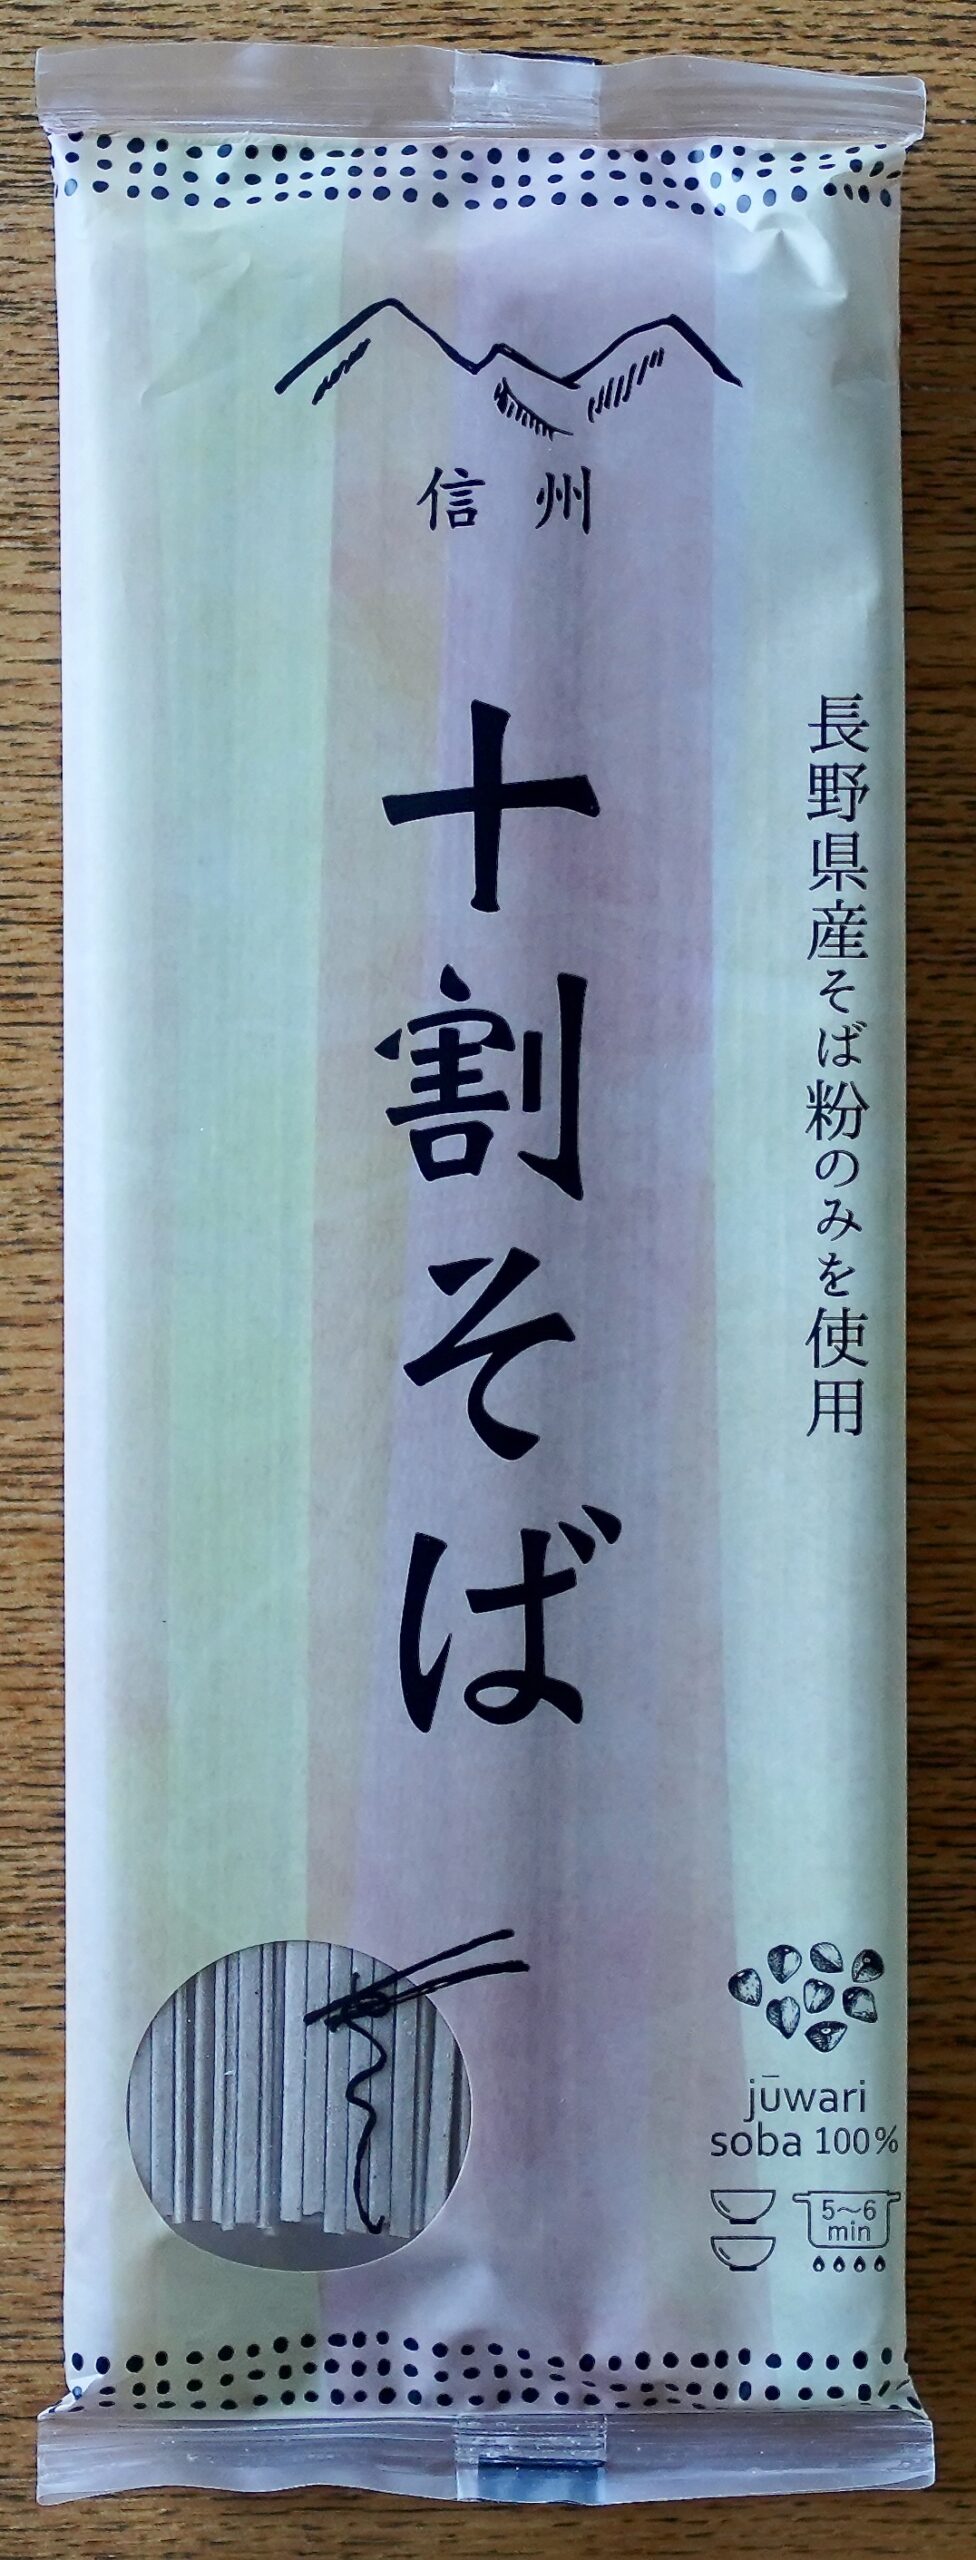 信州
十割そば
長野県産そば粉のみを使用
jūwari
soba 100%
5～6
min